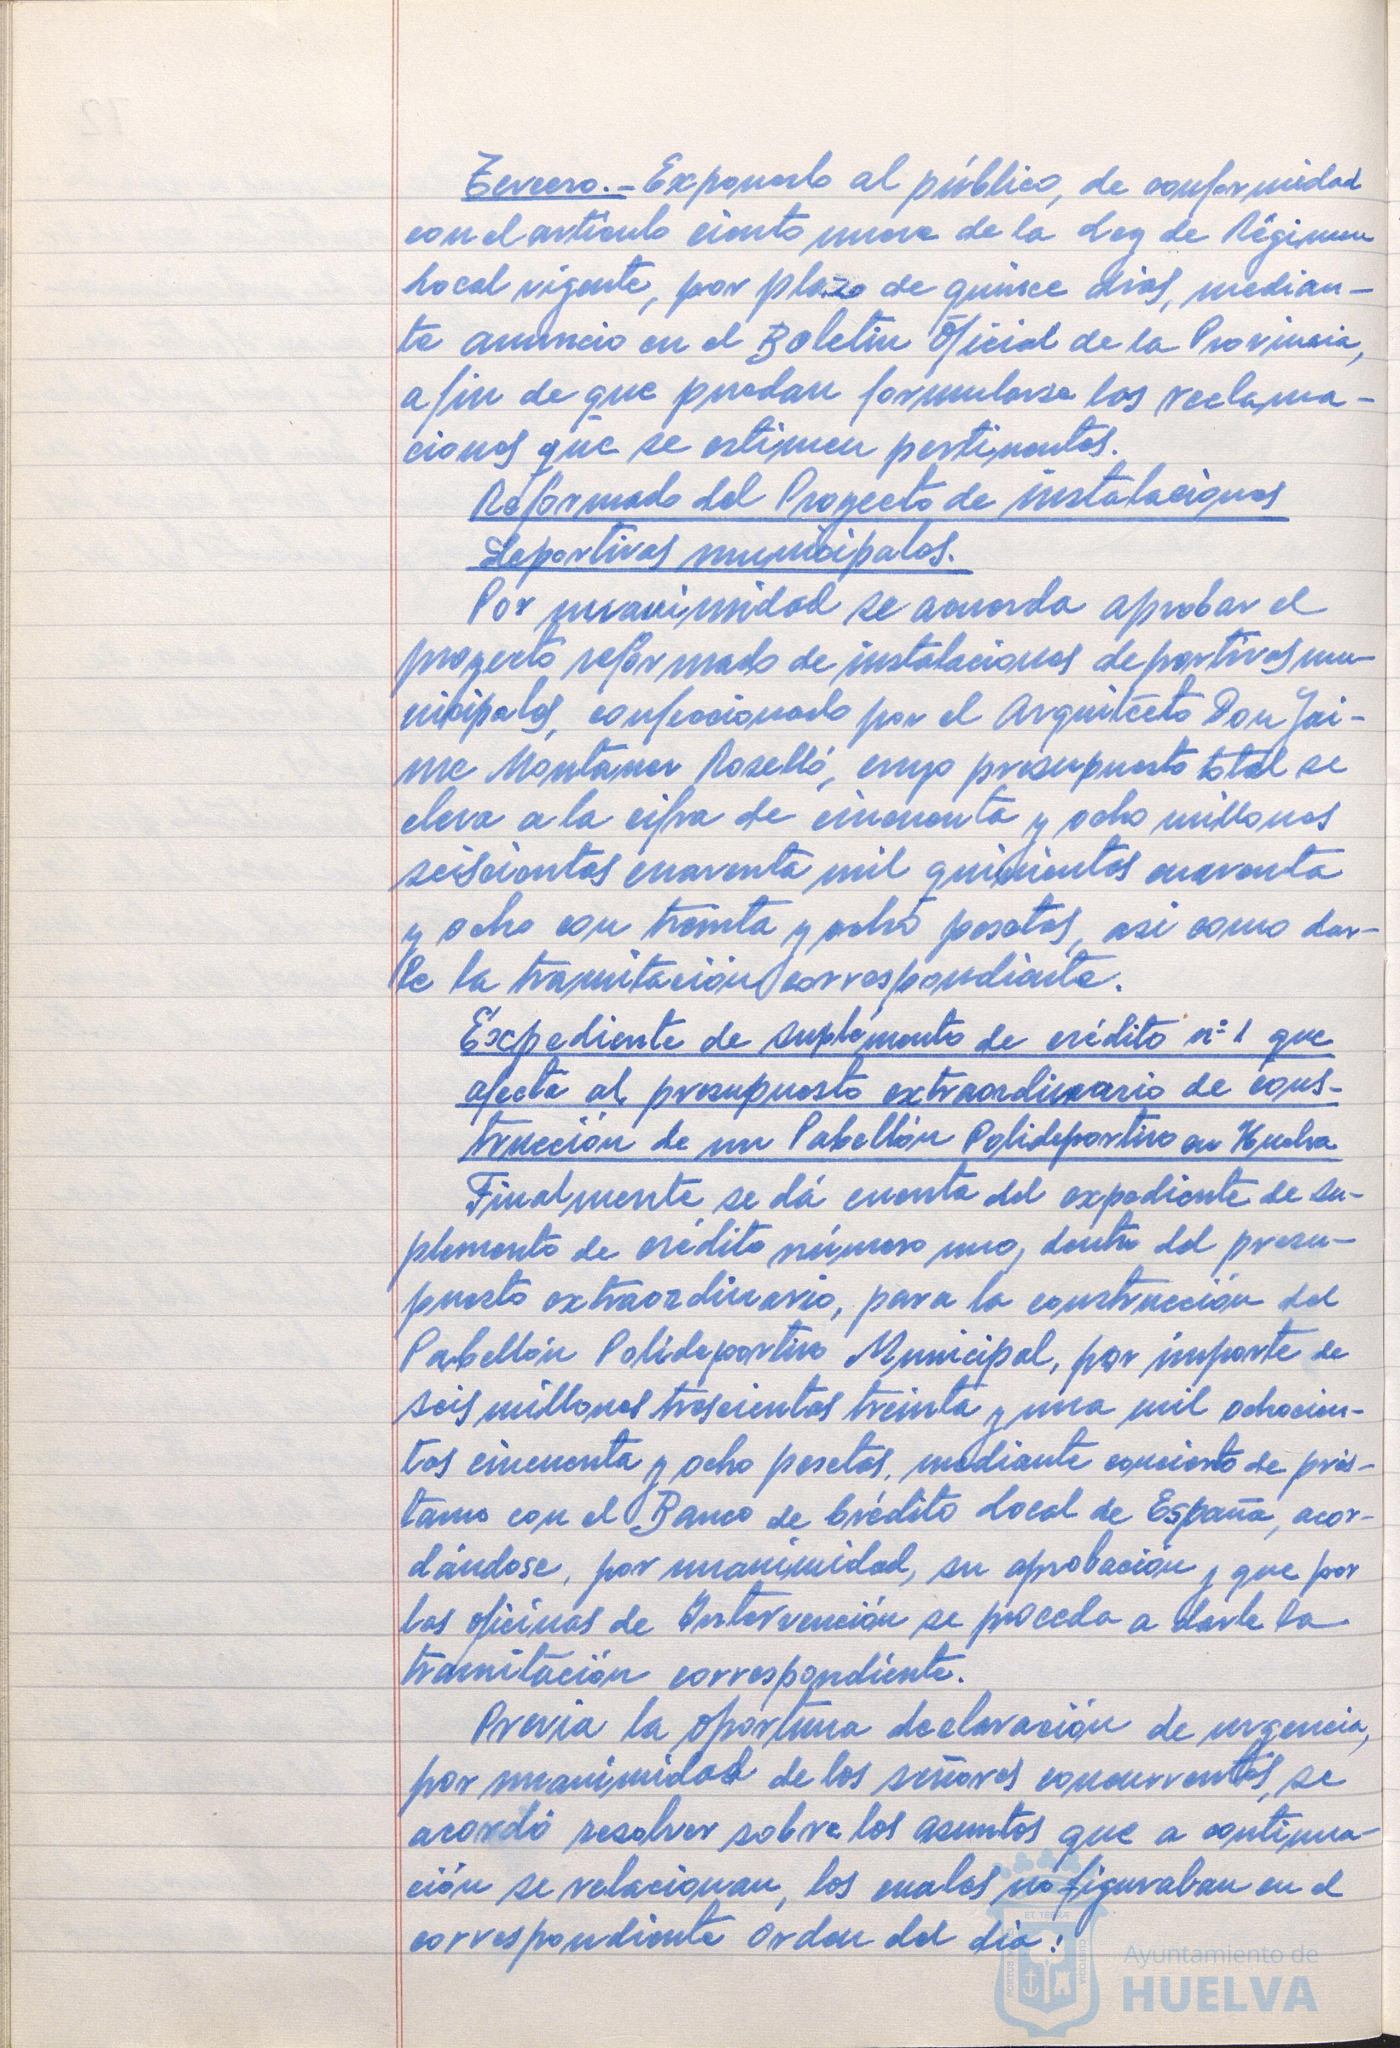 Tercero.- Exponerlo al público, de conformidad
con el artículo ciento nueve de la Ley de Régimen
Local vigente, por plazo de quince dias, median-
te anuncio en el Boletin Oficial de la Provincia,
a fin de que puedan formularse las reclama-
ciones que se estimen pertinentes.
Reformado del Proyecto de instalaciones
deportivas municipales.
Por unanimidad se acuerda aprobar el
proyecto reformado de instalaciones deportivas mu-
nicipales, confeccionado por el Arquitecto Don Jai-
me Montaner Roselló, cuyo presupuesto total se
eleva a la cifra de cincuenta y ocho millones
seiscientas cuarenta mil quinientas cuarenta
y ocho con treinta y ocho pesetas, asi como dar-
le la tramitación correspondiente.
Expediente de suplemento de crédito nº 1 que
afecta al presupuesto extraordinario de cons-
trucción de un Pabellón Polideportivo en Huelva
Finalmente se dá cuenta del expediente de su-
plemento de crédito número uno, dentro del presu-
puesto extraordinario, para la construcción del
Pabellón Polideportivo Municipal, por importe de
seis millones trescientas treinta y una mil ochocien-
tas cincuenta y ocho pesetas, mediante concierto de prés-
tamo con el Banco de Crédito Local de España, acor-
dándose, por unanimidad, su aprobación y que por
las oficinas de Intervención se proceda a darle la
tramitación correspondiente.
Previa la oportuna declaración de urgencia,
por unanimidad de los señores concurrentes, se
acordó resolver sobre los asuntos que a continua-
ción se relacionan, los cuales no figuraban en el
correspondiente Orden del dia:
Ayuntamiento de
HUELVA